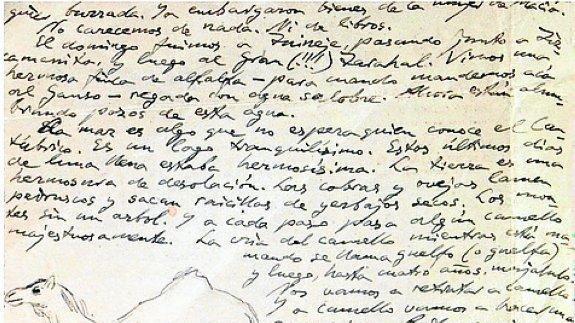 quier burrada. Ya embargaron bienes de la mujer de Macía.
No carecemos de nada. Ni de libros.
El domingo fuimos a Tuineje, pasando junto a
camanita, y luego al gran (!!!) Tarahal. Vimos una
hermosa finca de alfalfa – para cuando mandemos acá
al Ganso – regada con agua salobre. Ahora están alum-
brando pozos de esta agua.
La mar es algo que no espera quien conoce el Can-
tábrico. Es un lago tranquilísimo. Estos últimos días
de luna llena estaba hermosísima. La tierra es una
hermosura de desolación. Las cabras y ovejas lamen
pedruscos y sacan raicillas de yerbajos secos. Los mon-
tes sin un arbol. Y a cada paso pasa algún camello
majestuosamente. La cría del camello mientras está ma-
mando se llama guelfo (o güelfa)
y luego, hasta cuatro años,
Nos vamos a retratar a camello.
Y a camello vamos a hacer una